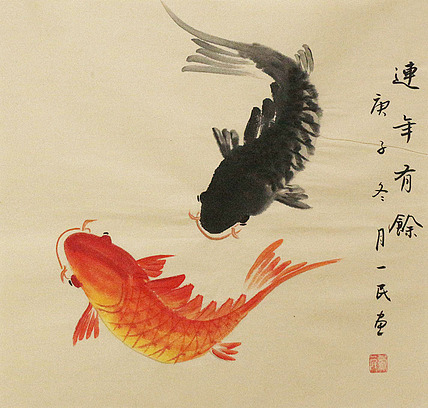 連年有餘
庚子冬月一民画